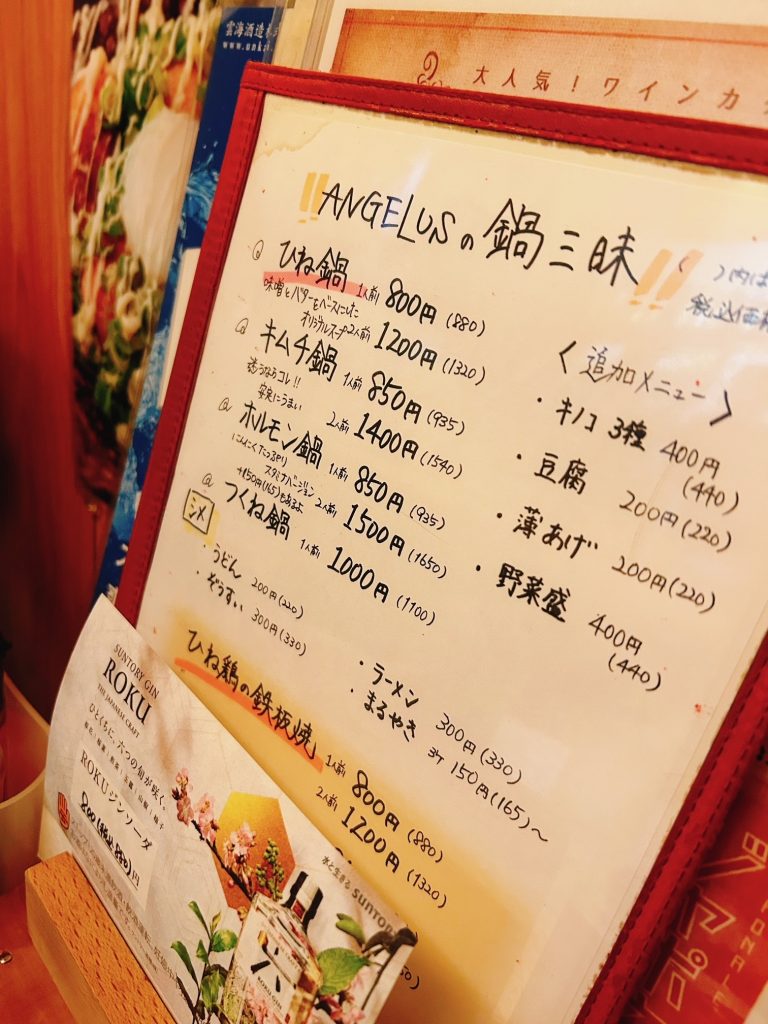 雲海酒造株式
大人気！ワインカ
!!ANGELUSの鍋三昧!!
( )内は
税込価格
@ ひね鍋 1人前 800円(880)
味噌とバターをベースにした
オリジナルスープ 2人前 1200円(1320)
@ キムチ鍋 1人前 850円(935)
迷うならコレ!!
確実にうまい 2人前 1400円(1540)
@ ホルモン鍋 1人前 850円(935)
にんにくたっぷり
スタミナバージョン 2人前 1500円(1650)
+150円(165)もあるよ
@ つくね鍋 1人前 1000円(1100)
〈追加メニュー〉
・キノコ3種 400円
(440)
・豆腐 200円(220)
・薄あげ 200円(220)
・野菜盛 400円
(440)
シメ
・うどん 200円(220)
・ぞうすい 300円(330)
・ラーメン 300円(330)
・まるやき 3ケ 150円(165)〜
ひね鶏の鉄板焼 1人前 800円(880)
2人前 1200円(1320)
SUNTORY GIN
ROKU
THE JAPANESE CRAFT
ひとくちに、六つの旬が咲く。
ROKUジンソーダ
800(税込880)円
水と生きる SUNTORY
六
ROKU GIN